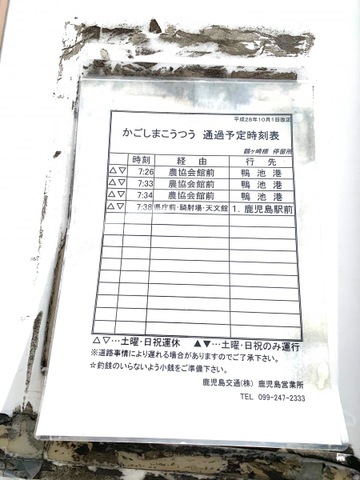 平成28年10月1日改正
かごしまこうつう 通過予定時刻表
鶴ヶ崎橋 停留所
時刻 経由 行先
△▽ 7:26 農協会館前 鴨池港
△▽ 7:33 農協会館前 鴨池港
△▽ 7:34 農協会館前 鴨池港
△▽ 7:38 県庁前・騎射場・天文館 1. 鹿児島駅前
△▽…土曜・日祝運休 ▲▼…土曜・日祝のみ運行
※道路事情により遅れる場合がありますのでご了承下さい。
☆釣銭のいらないよう小銭をご準備下さい。
鹿児島交通(株) 鹿児島営業所
TEL 099-247-2333